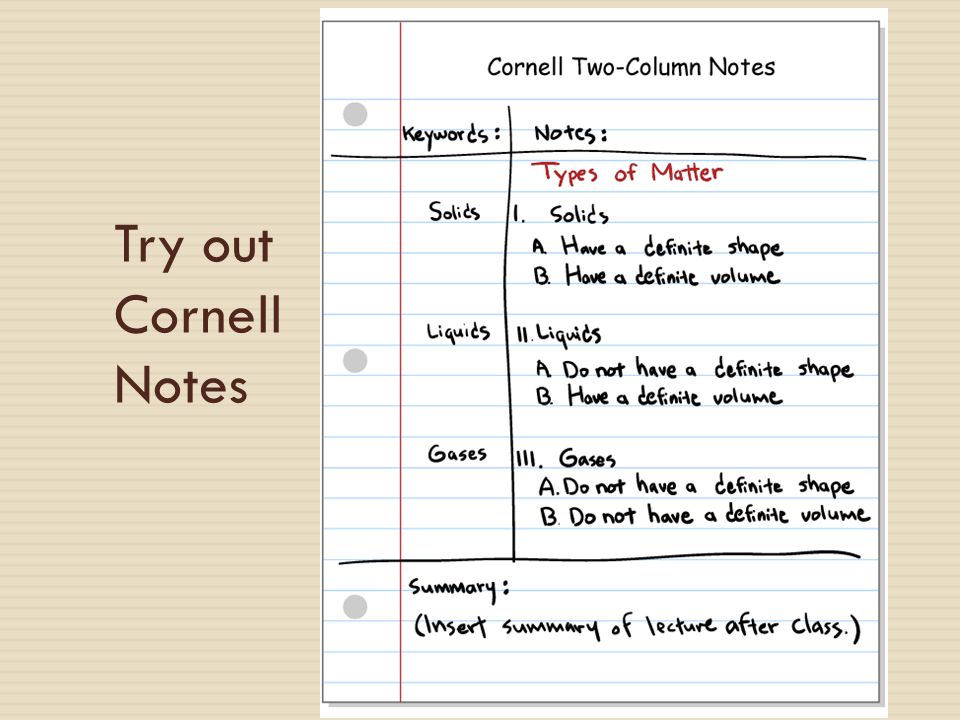 Try out
Cornell
Notes
Cornell Two-Column Notes
Keywords: Notes:
Types of Matter
Solids I. Solids
A. Have a definite shape
B. Have a definite volume
Liquids II. Liquids
A. Do not have a definite shape
B. Have a definite volume
Gases III. Gases
A. Do not have a definite shape
B. Do not have a definite volume
Summary:
(Insert summary of lecture after class.)